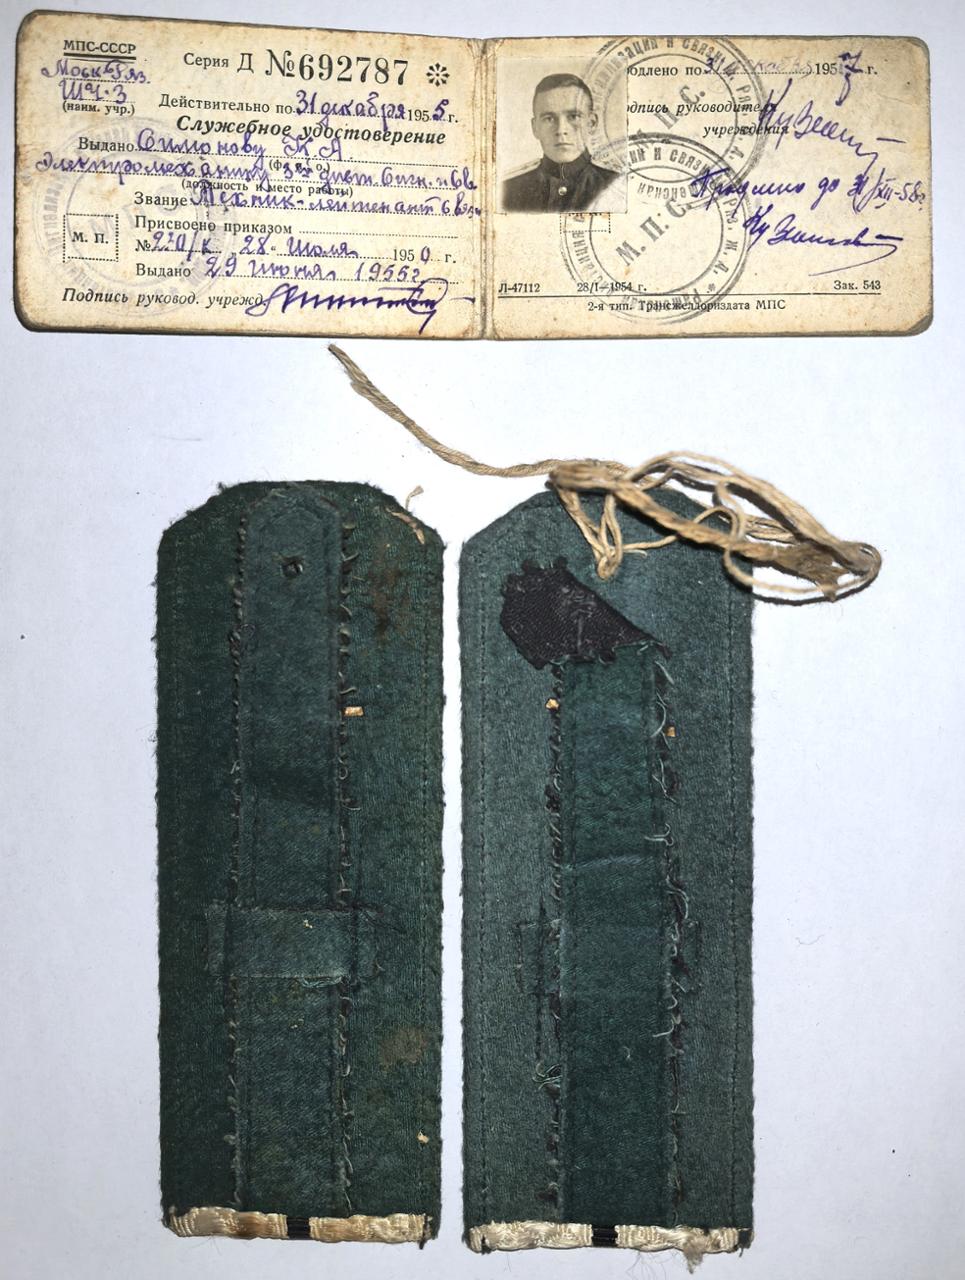 МПС-СССР
Серия Д №692787
ШЧ-3
(наим. учр.)
Действительно по 31 декабря 1955 г.
Служебное удостоверение
Выдано Симонову К А
(ф. и. о.)
Электромеханику 3й дист. Сигн. и Связи
(должность и место работы)
Звание Техник-лейтенант связи
Присвоено приказом
№ 220/к „28" июля 1950 г.
М. П.
Выдано 29 июня 1955г
Подпись руковод. учрежд.
одлено по 31 декабря 1957 г.
одпись руководителя
учреждения
Продлено до 31/XII-58г
М. П. С.
Л-47112 28/I—1954 г. Зак. 543
2-я тип. Трансжелдориздата МПС